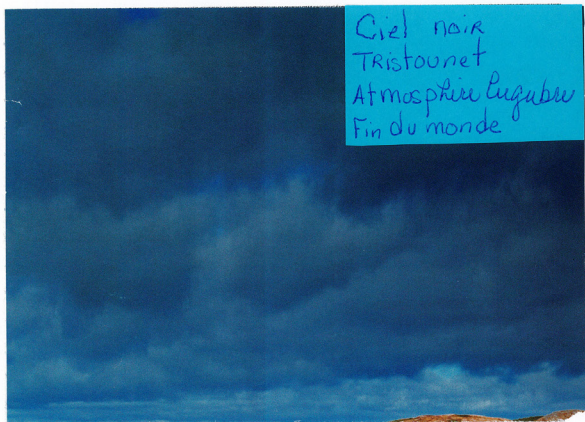 Ciel noir
Tristounet
Atmosphère lugubre
Fin du monde